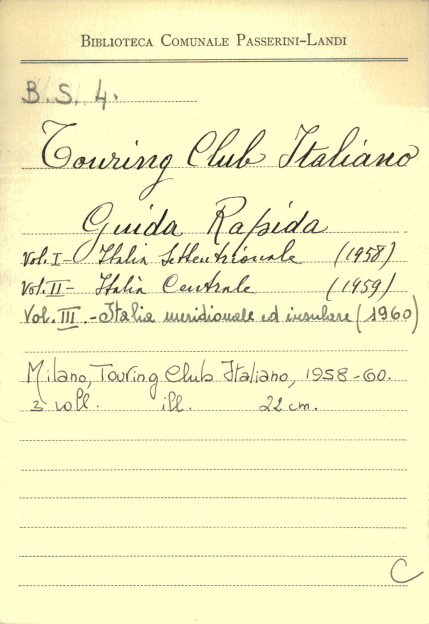 BIBLIOTECA COMUNALE PASSERINI-LANDI
B. S. 4.
Touring Club Italiano
Guida Rapida
Vol. I - Italia Settentrionale (1958)
Vol. II - Italia Centrale (1959)
Vol. III. - Italia meridionale ed insulare (1960)
Milano, Touring Club Italiano, 1958-60.
3 voll. ill. 22 cm.
C